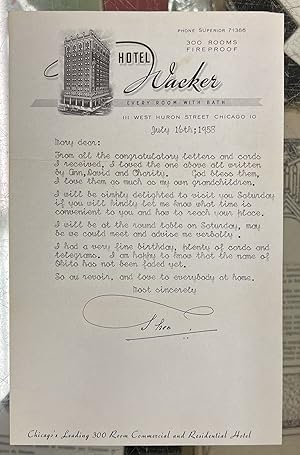 PHONE SUPERIOR 7-1386
300 ROOMS
FIREPROOF
HOTEL
Wacker
EVERY ROOM WITH BATH
111 WEST HURON STREET CHICAGO 10
July 16th; 1958
Mary dear:
From all the congratulatory letters and cards
I received, I loved the one above all written
by Ann, David and Charity. God bless them,
I love them as much as my own grandchildren.
I will be simply delighted to visit you Saturday
if you will kindly let me know what time is
convenient to you and how to reach your place.
I will be at the round table on Saturday, may
be we could meet and advise me verbally.
I had a very fine birthday, plenty of cards and
telegrams. I am happy to know that the name of
Ohito has not been faded yet.
So au revoir, and love to everybody at home.
Most sincerely
Chicago's Leading 300 Room Commercial and Residential Hotel